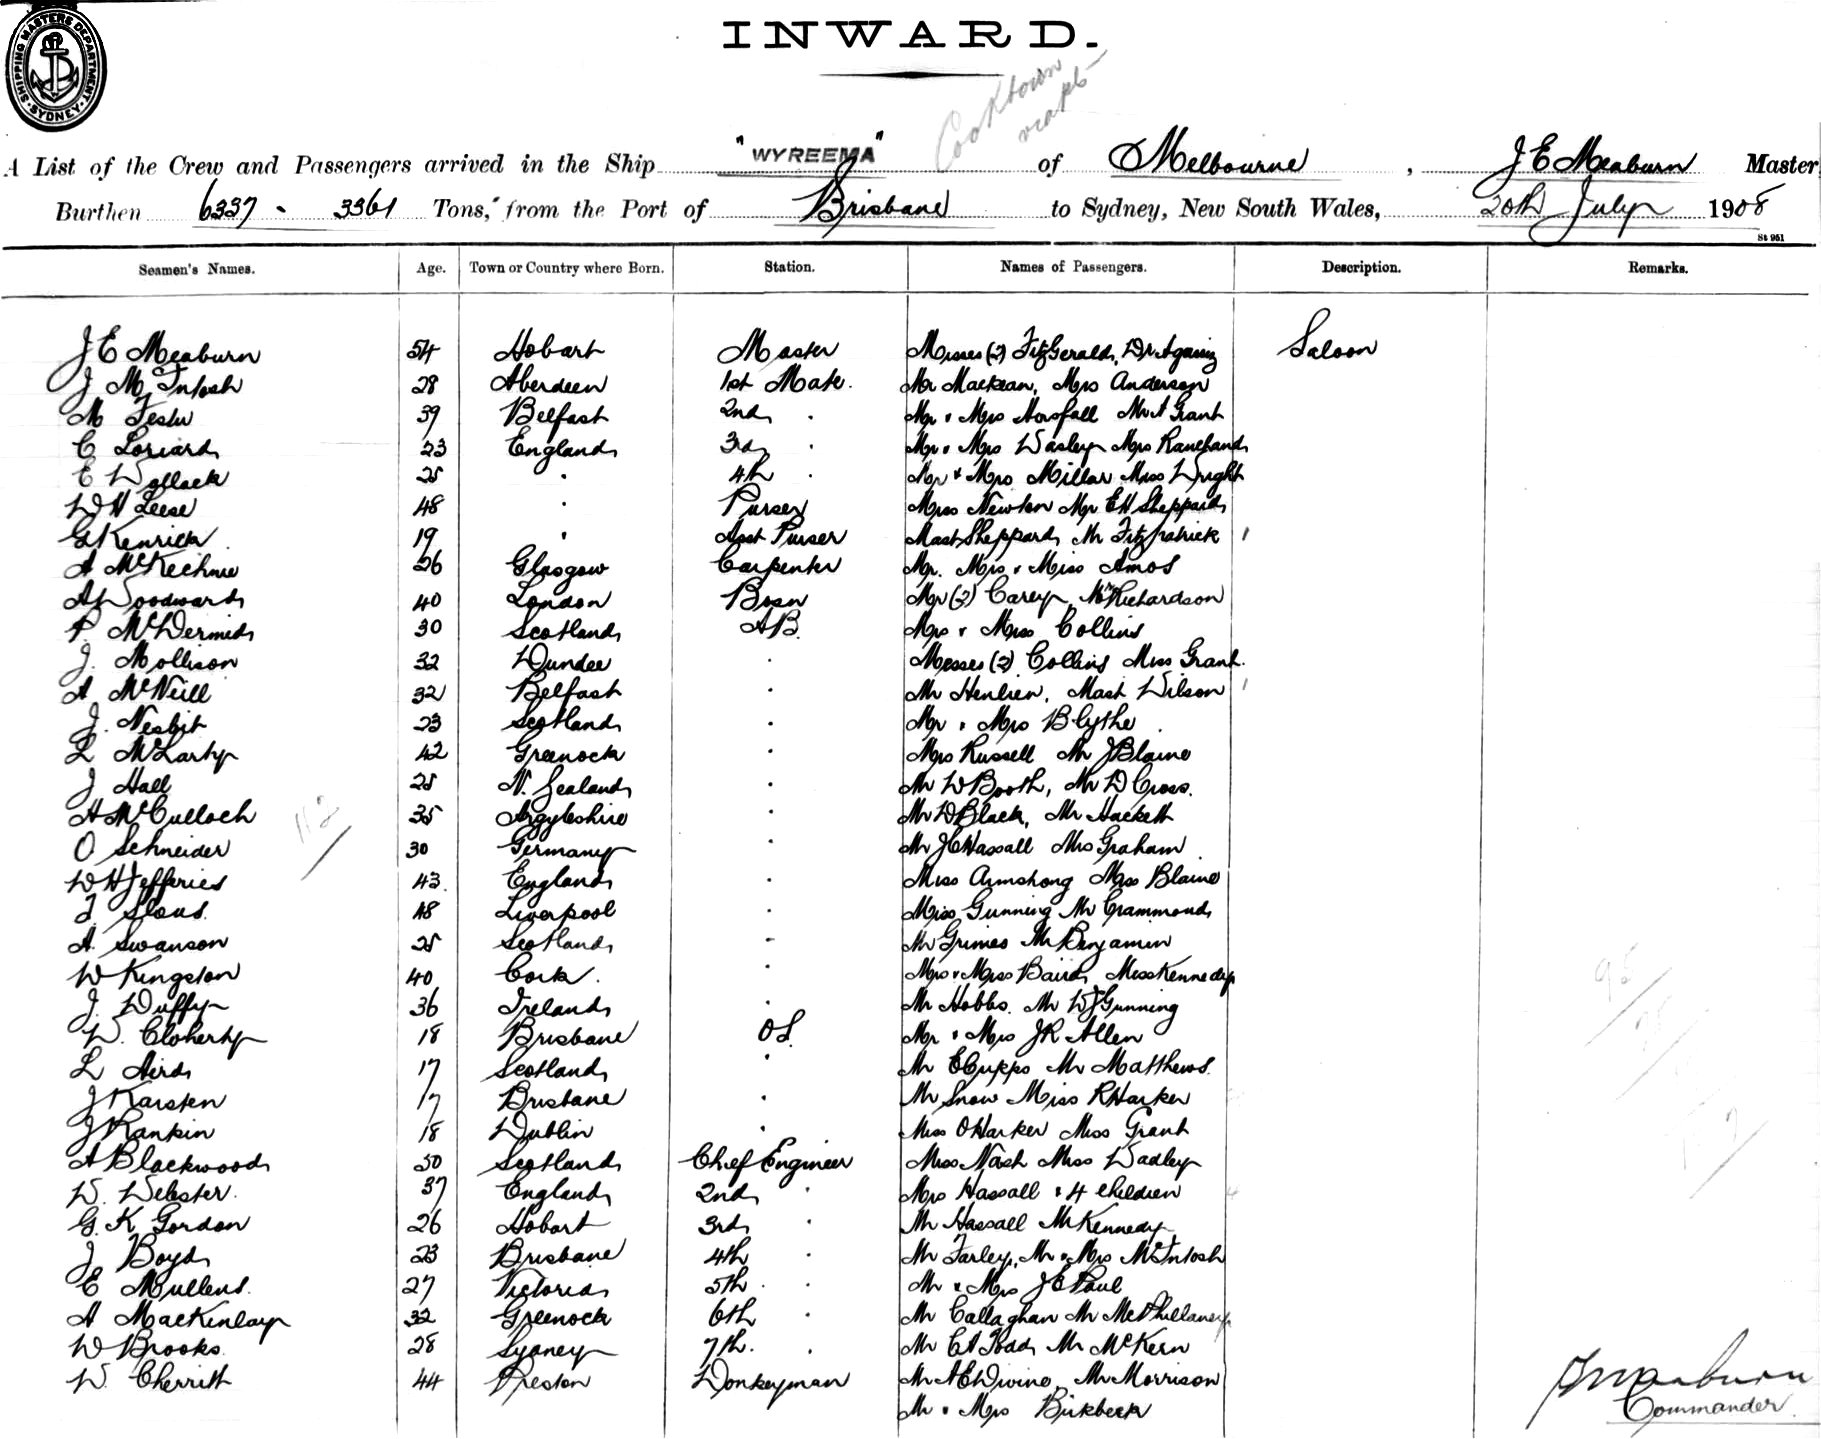 SHIPPING MASTERS DEPARTMENT · SYDNEY ·
INWARD.
Cooktown
"WYREEMA"
A List of the Crew and Passengers arrived in the Ship "WYREEMA" of Melbourne, J E Meaburn Master
Burthen 6337 - 3361 Tons, from the Port of Brisbane to Sydney, New South Wales, 20th July 1908
St 951
Seamen's Names. Age. Town or Country where Born. Station. Names of Passengers. Description. Remarks.
J E Meaburn 54 Hobart Master Misses (2) FitzGerald, Dr Saloon
J McIntosh 28 Aberdeen 1st Mate. Mr Mackean, Mrs Anderson
M 39 Belfast 2nd " Mr & Mrs Horsfall Mr A Grant
C Loriard 23 England 3rd " Mr & Mrs Wasley Mrs
E Wollack 25 " 4th " Mr & Mrs Millar Miss Wright
W H Leese 48 " Purser Miss Newton Mr E H Sheppard
G Kenrick 19 " Asst Purser Mast Sheppard, Mr Fitzpatrick
A McKechnie 26 Glasgow Carpenter Mr. Mrs & Miss Amos
A Woodward 40 London Bosn Mr (2) Carey, Richardson
P. McDermid 30 Scotland AB. Mrs & Miss Collins
J. Mollison 32 Dundee " Messes (2) Collins Miss Grant.
A McNeill 32 Belfast " Mr Henlien, Mast Wilson
J. Nesbit 23 Scotland " Mr & Mrs Blythe
L McLarty 42 Greenock " Mrs Russell Mr J Blaine
J Hall 25 N. Zealand " Mr W Booth, Mr D Cross.
H McCulloch 35 Argyleshire " Mr W Black, Mr Hackett
O Schneider 30 Germany " Mr J C Hassall Mrs Graham
W H Jefferies 43 England " Miss Armstrong Miss Blaine
48 Liverpool " Miss Gunning Mr Crammond
A. Swanson 25 Scotland " Mr Grimes Mr Benjamin
W Kingston 40 Cork. " Mrs & Miss Baird, Miss Kennedy
J. Duffy 36 Ireland " Mr Hobbs. Mr W J Gunning
W. Cloherty 18 Brisbane OS. Mr & Mrs J R Allen
L Aird 17 Scotland " Mr E Cupps Mr Matthews.
J Karsten 17 Brisbane " Mr Snow Miss R Harker
J Rankin 18 Dublin " Miss O Harker Miss Grant
A Blackwood 50 Scotland Chief Engineer Miss Nash Miss Wadley
W. Webster. 37 England 2nd " Mrs Hassall & 4 children
G. K Gordon 26 Hobart 3rd " Mr Hassall Mr Kennedy
J Boyd 23 Brisbane 4th " Mr Farley, Mr & Mrs McIntosh
E Mullens. 27 Victoria 5th " Mr & Mrs J E Paul
A MacKinlay 32 Greenock 6th " Mr Callaghan Mr McPhillamey
W Brooks. 28 Sydney 7th. " Mr C A Todd, Mr McKern
W. Cherrith 44 Preston Donkeyman Mr A E Divine, Mr Morrison
Mr & Mrs Birkbeck
J E Meaburn
Commander.